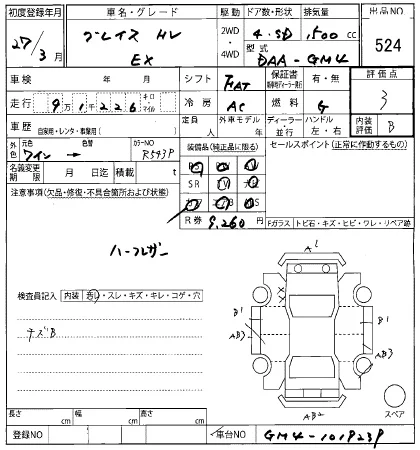 初度登録年月 車名・グレード 駆動 ドア数・形状 排気量 出品NO
27/3月 グレイス HV EX 2WD・4WD 4.SD 1,500cc 524
型式 DAA-GM4
車検 年 月 シフト FAT 保証書 有・無 評価点 3
走行 9万1千226 キロ・マイル 冷房 AC 燃料 G
車歴 自家用・レンタ・事業用( ) 定員 人 外車モデル 年 ディーラー・並行 ハンドル 左・右 内装評価 B
外色 元色 ワイン → 色替 カラーNO R543P 装備品(純正品に限る) セールスポイント(正常に作動するもの)
名義変更期限 月 日迄 積載 t SR
注意事項(欠品・修復・不具合箇所および状態)
R券 9,260 Fガラス トビ石・キズ・ヒビ・ワレ・リペア跡
ハーフレザー
A1
検査員記入 内装 悪い・スレ・キズ・キレ・コゲ・穴
チズB
B1 AB3
B1 AB3
AB2
スペア
長さ cm 幅 cm 高さ cm
登録NO 車台NO